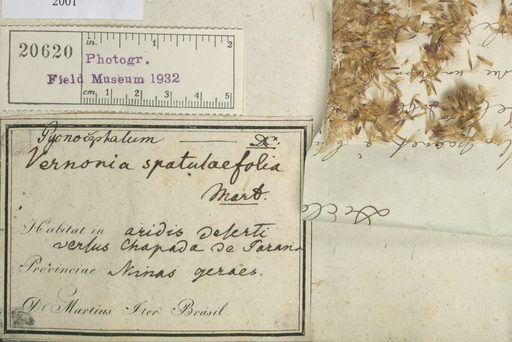 2001
20620
in. 1 2
Photogr.
Field Museum 1932
cm. 1 2 3 4 5
Pycnocephalum DC.
Vernonia spatulaefolia
Mart.
Habitat in aridis deserti
versus Chapada de Parana
Provinciae Minas geraes.
Dr Martius Iter Brasil.